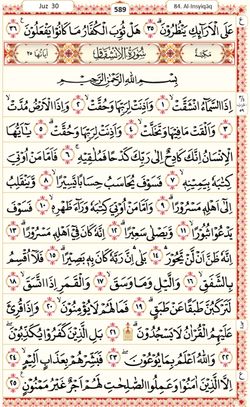 Juz 30 589 84. Al-Insyiqāq
عَلَى الْاَرَاۤىِٕكِ يَنْظُرُوْنَۗ ٣٥ هَلْ ثُوِّبَ الْكُفَّارُ مَا كَانُوْا يَفْعَلُوْنَ ٣٦
مَكِّيَّة سُوْرَةُ الْاِنْشِقَاقِ اٰيَاتُهَا ٢٥
بِسْمِ اللّٰهِ الرَّحْمٰنِ الرَّحِيْمِ
اِذَا السَّمَاۤءُ انْشَقَّتْۙ ١ وَاَذِنَتْ لِرَبِّهَا وَحُقَّتْۙ ٢ وَاِذَا الْاَرْضُ مُدَّتْۙ
٣ وَاَلْقَتْ مَا فِيْهَا وَتَخَلَّتْۙ ٤ وَاَذِنَتْ لِرَبِّهَا وَحُقَّتْۗ ٥ يٰٓاَيُّهَا
الْاِنْسَانُ اِنَّكَ كَادِحٌ اِلٰى رَبِّكَ كَدْحًا فَمُلٰقِيْهِۚ ٦ فَاَمَّا مَنْ اُوْتِيَ
كِتٰبَهٗ بِيَمِيْنِهٖۙ ٧ فَسَوْفَ يُحَاسَبُ حِسَابًا يَّسِيْرًاۙ ٨ وَّيَنْقَلِبُ
اِلٰٓى اَهْلِهٖ مَسْرُوْرًاۗ ٩ وَاَمَّا مَنْ اُوْتِيَ كِتٰبَهٗ وَرَاۤءَ ظَهْرِهٖۙ ١٠ فَسَوْفَ
يَدْعُوْا ثُبُوْرًاۙ ١١ وَّيَصْلٰى سَعِيْرًاۗ ١٢ اِنَّهٗ كَانَ فِيْٓ اَهْلِهٖ مَسْرُوْرًاۗ ١٣
اِنَّهٗ ظَنَّ اَنْ لَّنْ يَّحُوْرَۛ ١٤ بَلٰىۛ اِنَّ رَبَّهٗ كَانَ بِهٖ بَصِيْرًاۗ ١٥ فَلَآ اُقْسِمُ
بِالشَّفَقِۙ ١٦ وَالَّيْلِ وَمَا وَسَقَۙ ١٧ وَالْقَمَرِ اِذَا اتَّسَقَۙ ١٨
لَتَرْكَبُنَّ طَبَقًا عَنْ طَبَقٍۗ ١٩ فَمَا لَهُمْ لَا يُؤْمِنُوْنَۙ ٢٠ وَاِذَا قُرِئَ
عَلَيْهِمُ الْقُرْاٰنُ لَا يَسْجُدُوْنَۗ ۩ ٢١ بَلِ الَّذِيْنَ كَفَرُوْا يُكَذِّبُوْنَۖ
٢٢ وَاللّٰهُ اَعْلَمُ بِمَا يُوْعُوْنَۖ ٢٣ فَبَشِّرْهُمْ بِعَذَابٍ اَلِيْمٍۙ ٢٤
اِلَّا الَّذِيْنَ اٰمَنُوْا وَعَمِلُوا الصّٰلِحٰتِ لَهُمْ اَجْرٌ غَيْرُ مَمْنُوْنٍ ٢٥